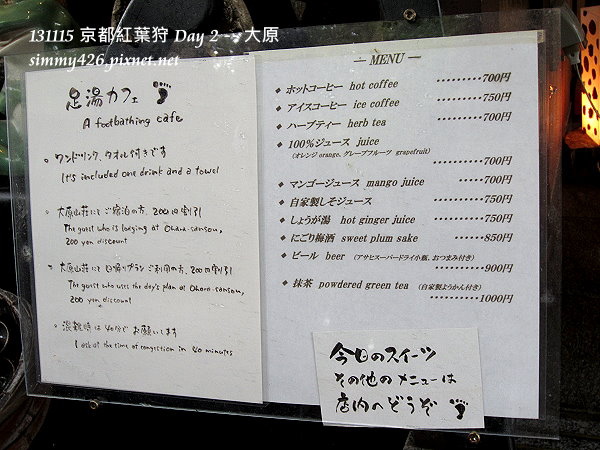 131115 京都紅葉狩 Day 2 -- 大原
simmy426.pixnet.net
足湯カフェ
A footbathing cafe
○ ワンドリンク、タオル付きです
It's included one drink and a towel
○ 大原山荘にご宿泊の方、200円割引
The guest who is lodging at Ohara-sansou,
200 yen discount
○ 大原山荘にて日帰りプランご利用の方、200円割引
The guest who uses the day's plan at Ohara-sansou,
200 yen discount
○ 混雑時は40分でお願いします
I ask at the time of congestion in 40 minutes
— MENU —
◆ ホットコーヒー hot coffee ·········700円
◆ アイスコーヒー ice coffee ·········750円
◆ ハーブティー herb tea ·········700円
◆ 100%ジュース juice
(オレンジ orange, グレープフルーツ grapefruit)
·········700円
◆ マンゴージュース mango juice ······700円
◆ 自家製しそジュース ······750円
◆ しょうが湯 hot ginger juice ······750円
◆ にごり梅酒 sweet plum sake ······850円
◆ ビール beer (アサヒスーパードライ小瓶、おつまみ付き)
·········900円
◆ 抹茶 powdered green tea (自家製ようかん付き)
·········1000円
今日のスイーツ
その他のメニューは
店内へどうぞ